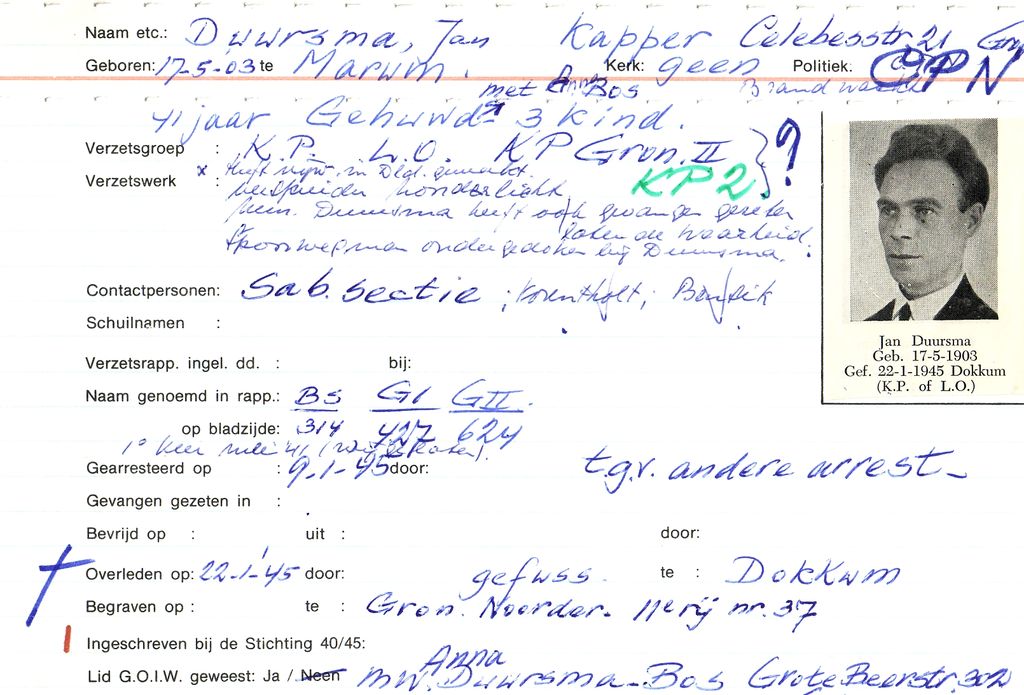 Naam etc.: Duursma, Jan Kapper Celebesstr. 21 Gr
Geboren: 17-5-03 te Marum. Kerk: geen Politiek: CPN
met Anna Bos Brandwacht
41 jaar Gehuwd 3 kind.
Verzetsgroep : K.P. L.O. KP Gron. II } ?
Verzetswerk : x Heeft in Dld. gewerkt. KP2
verspreider
Duursma heeft ook gevangen gezeten
de waarheid.
Spoorwegman ondergedoken bij Duursma.
Contactpersonen: Sab. sectie ;
Schuilnamen :
Verzetsrapp. ingel. dd. : bij:
Naam genoemd in rapp.: BS GI GII.
op bladzijde: 314 427 624
1e keer
Gearresteerd op : 9-1-45 door: t.g.v. andere arrest-
Gevangen gezeten in :
Bevrijd op : uit : door:
Overleden op: 22-1-45 door: gefuss. te : Dokkum
Begraven op : te : Gron. Noorder- 11e rij nr. 37
Ingeschreven bij de Stichting 40/45:
Anna
Lid G.O.I.W. geweest: Ja / Neen mw. Duursma-Bos Grote Beerstr 302
Jan Duursma
Geb. 17-5-1903
Gef. 22-1-1945 Dokkum
(K.P. of L.O.)